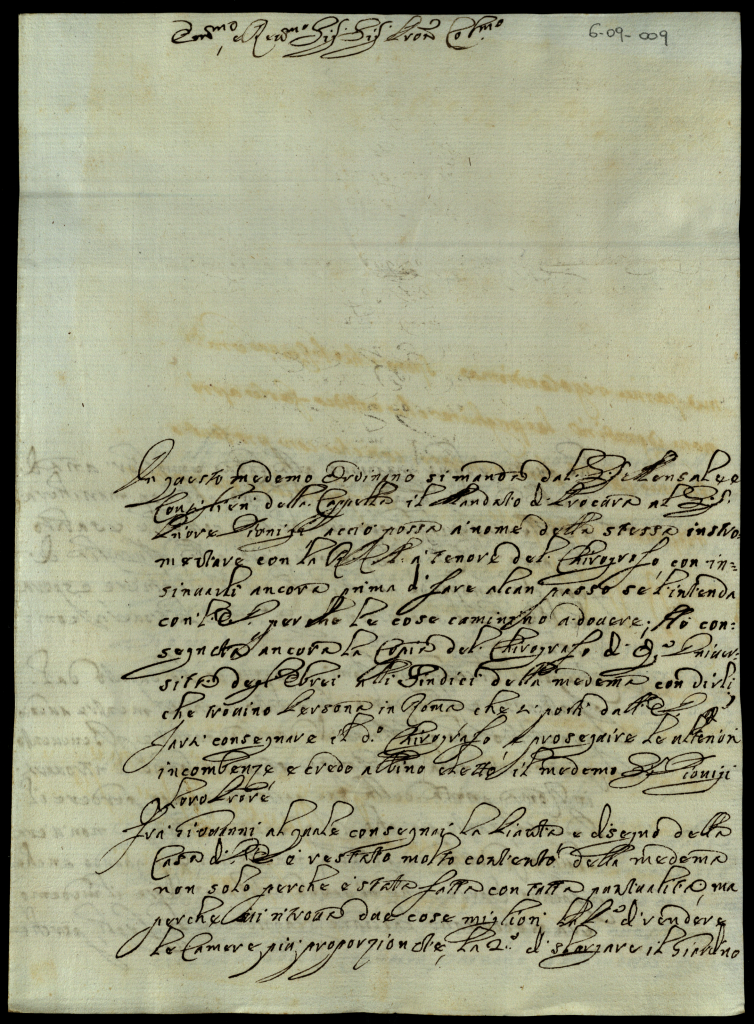 6-09-009
Emo, e Rmo Sig. Sig. Pron Colmo
In questo medemo Ordinario si manda dal Sig. Mensale e
Consiglieri della Cappella il Mandato di Procura al Sig.
Dionigi acciò possa à nome della stessa instro-
mentare con la R. à tenore del Chirografo, con in-
sinuarli ancora prima di fare alcun passo se l'intenda
con perche le cose caminino à dovere; Hò con-
segnata ancora la Copia del Chirografo di q.ta Univer-
sità degl'Ebrei alli Giudici della medema con dirli
che trovino Persona in Roma che si porti dall'
farsi consegnare il d.o Chirografo e proseguire le ulteriori
incombenze e credo abbino eletto il medemo Sig. Dionigi
p loro Prore
Frà Giovanni al quale consegnai la Pianta e disegno della
Casa di è restato molto contento della medema
non solo perche è stata fatta con tutta puntualità, ma
perche vi ritrova due cose migliori la P.a di rendere
le Camere più proporzionate, la 2.a di slargare il Giardino